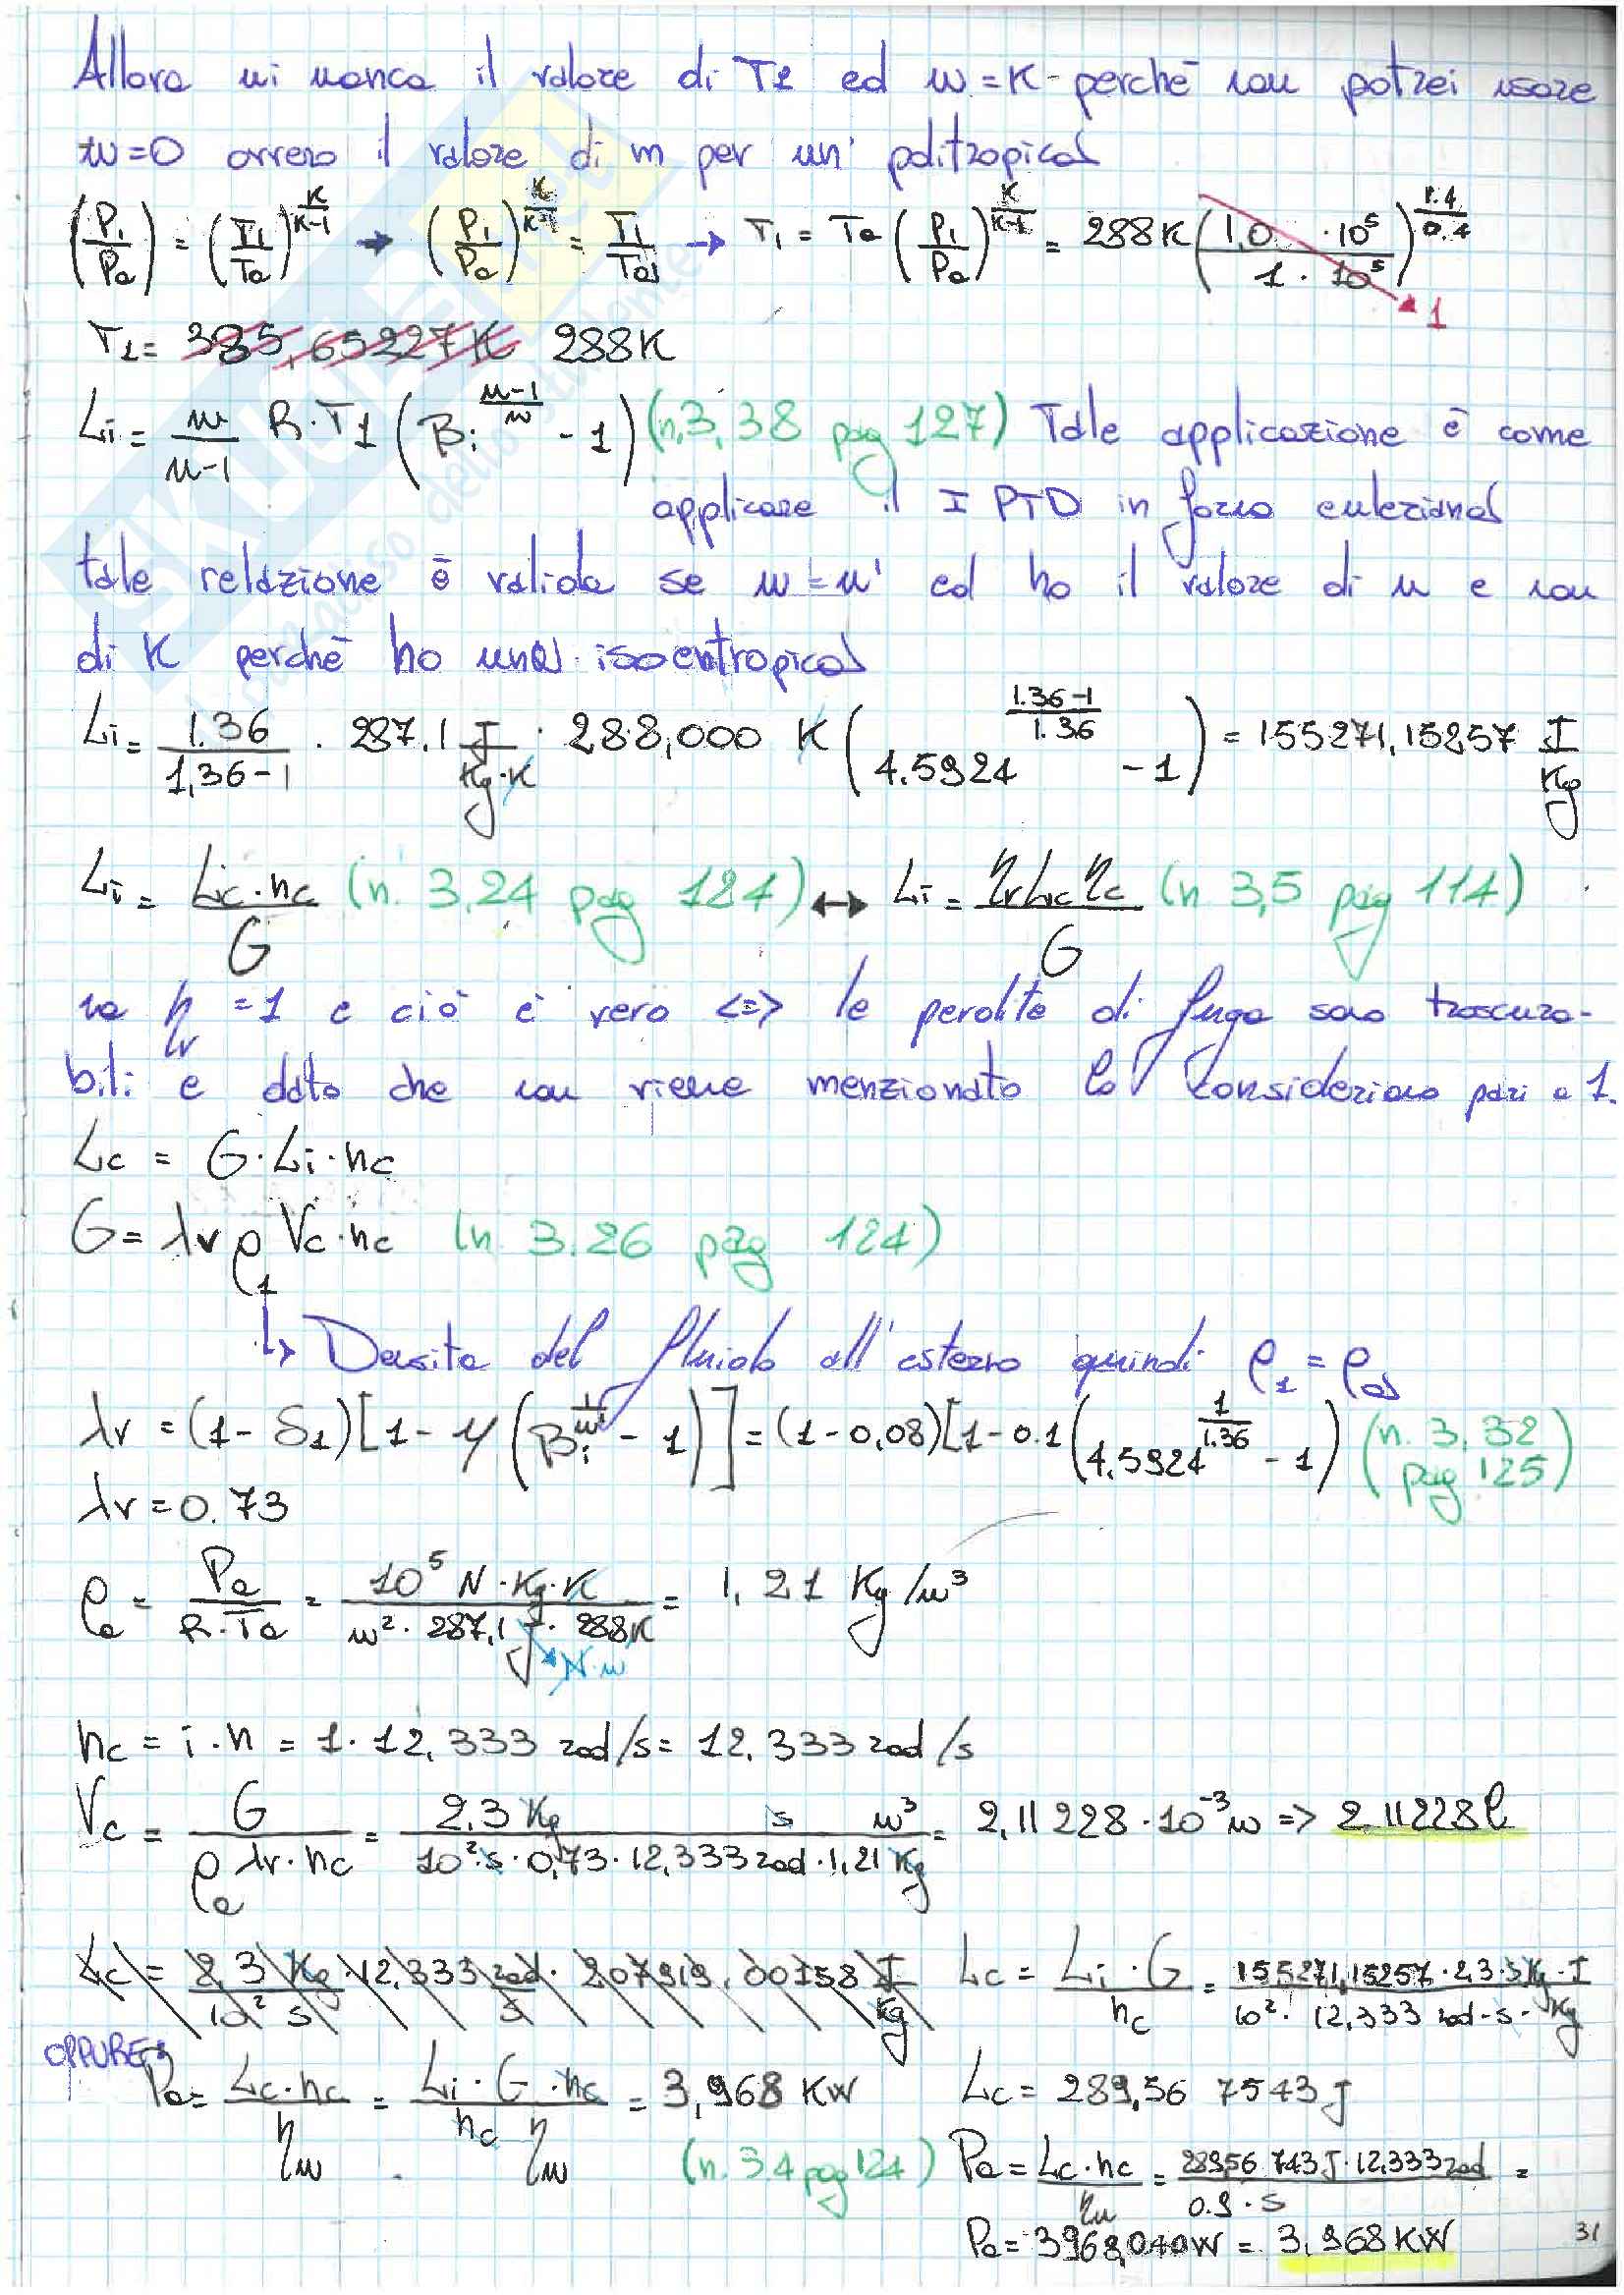 Allora mi manca il valore di T1 ed m = K - perchè non potrei usare
m = 0 ovvero il valore di m per un' politropica
(P1/Pa) = (T1/Ta)^(K/K-1) → (P1/Pa)^(K/K-1) = T1/Ta → T1 = Ta (P1/Pa)^(K/K-1) = 288K (1,0 · 10^5 / 1 · 10^5)^(1.4/0.4) → 1
T1 = 385,65227K 288K
Li = m/(m-1) R·T1 (Bi^((m-1)/m) - 1) (n.3,38 pag 127) Tale applicazione è come
applicare il I PTD in forma euleriana
tale relazione è valida se m = m' ed ho il valore di m e non
di K perchè ho una isoentropica
Li = 1.36/(1,36-1) · 287.1 J/Kg·K · 288,000 K (4.5924^((1.36-1)/1.36) - 1) = 155271,15257 J/Kg
Li = Lic·nc/G (n. 3,24 pag 124) ↔ Li = ηv Lc ηc/G (n 3,5 pag 114)
ma ηv = 1 e ciò è vero <=> le perdite di fuga sono trascura-
bili e dato che non viene menzionato lo consideriamo pari a 1.
Lc = G·Li·nc
G = λv ρ1 Vc·nc (n 3.26 pag 124)
↳ Densità del fluido all'esterno quindi ρ1 = ρa
λv = (1-δ1)[1-μ(Bi^(1/m') - 1)] = (1-0,08)[1-0.1(4.5924^(1/1.36) - 1) (n. 3,32 pag 125)
λv = 0.73
ρa = Pa/(R·Ta) = 10^5 N·Kg·K/(m²·287,1 J·288K) = 1,21 Kg/m³
N·m
nc = i·n = 1·12,333 rad/s = 12,333 rad/s
Vc = G/(ρa λv·nc) = 2,3 Kg s m³/(10²·s·0,73·12,333 rad·1,21 Kg) = 2,11228·10^-3 m => 2.11228 l
Lc = 2,3 Kg/10² s · 12,333 rad/s · 207919,00158 J/Kg Lc = Li·G/nc = 155271,15257·2,3·s Kg·J/(10²·12,333 rad·s·Kg)
OPPURE
Pa = Lc·nc/ηm = Li·G·nc/(nc ηm) = 3,968 KW Lc = 289,56 7543 J
(n. 3.4 pag 124) Pa = Lc·nc/ηm = 289,56 743 J·12,333 rad/(0.9·s) =
Pa = 3968,040W = 3,968 KW
31